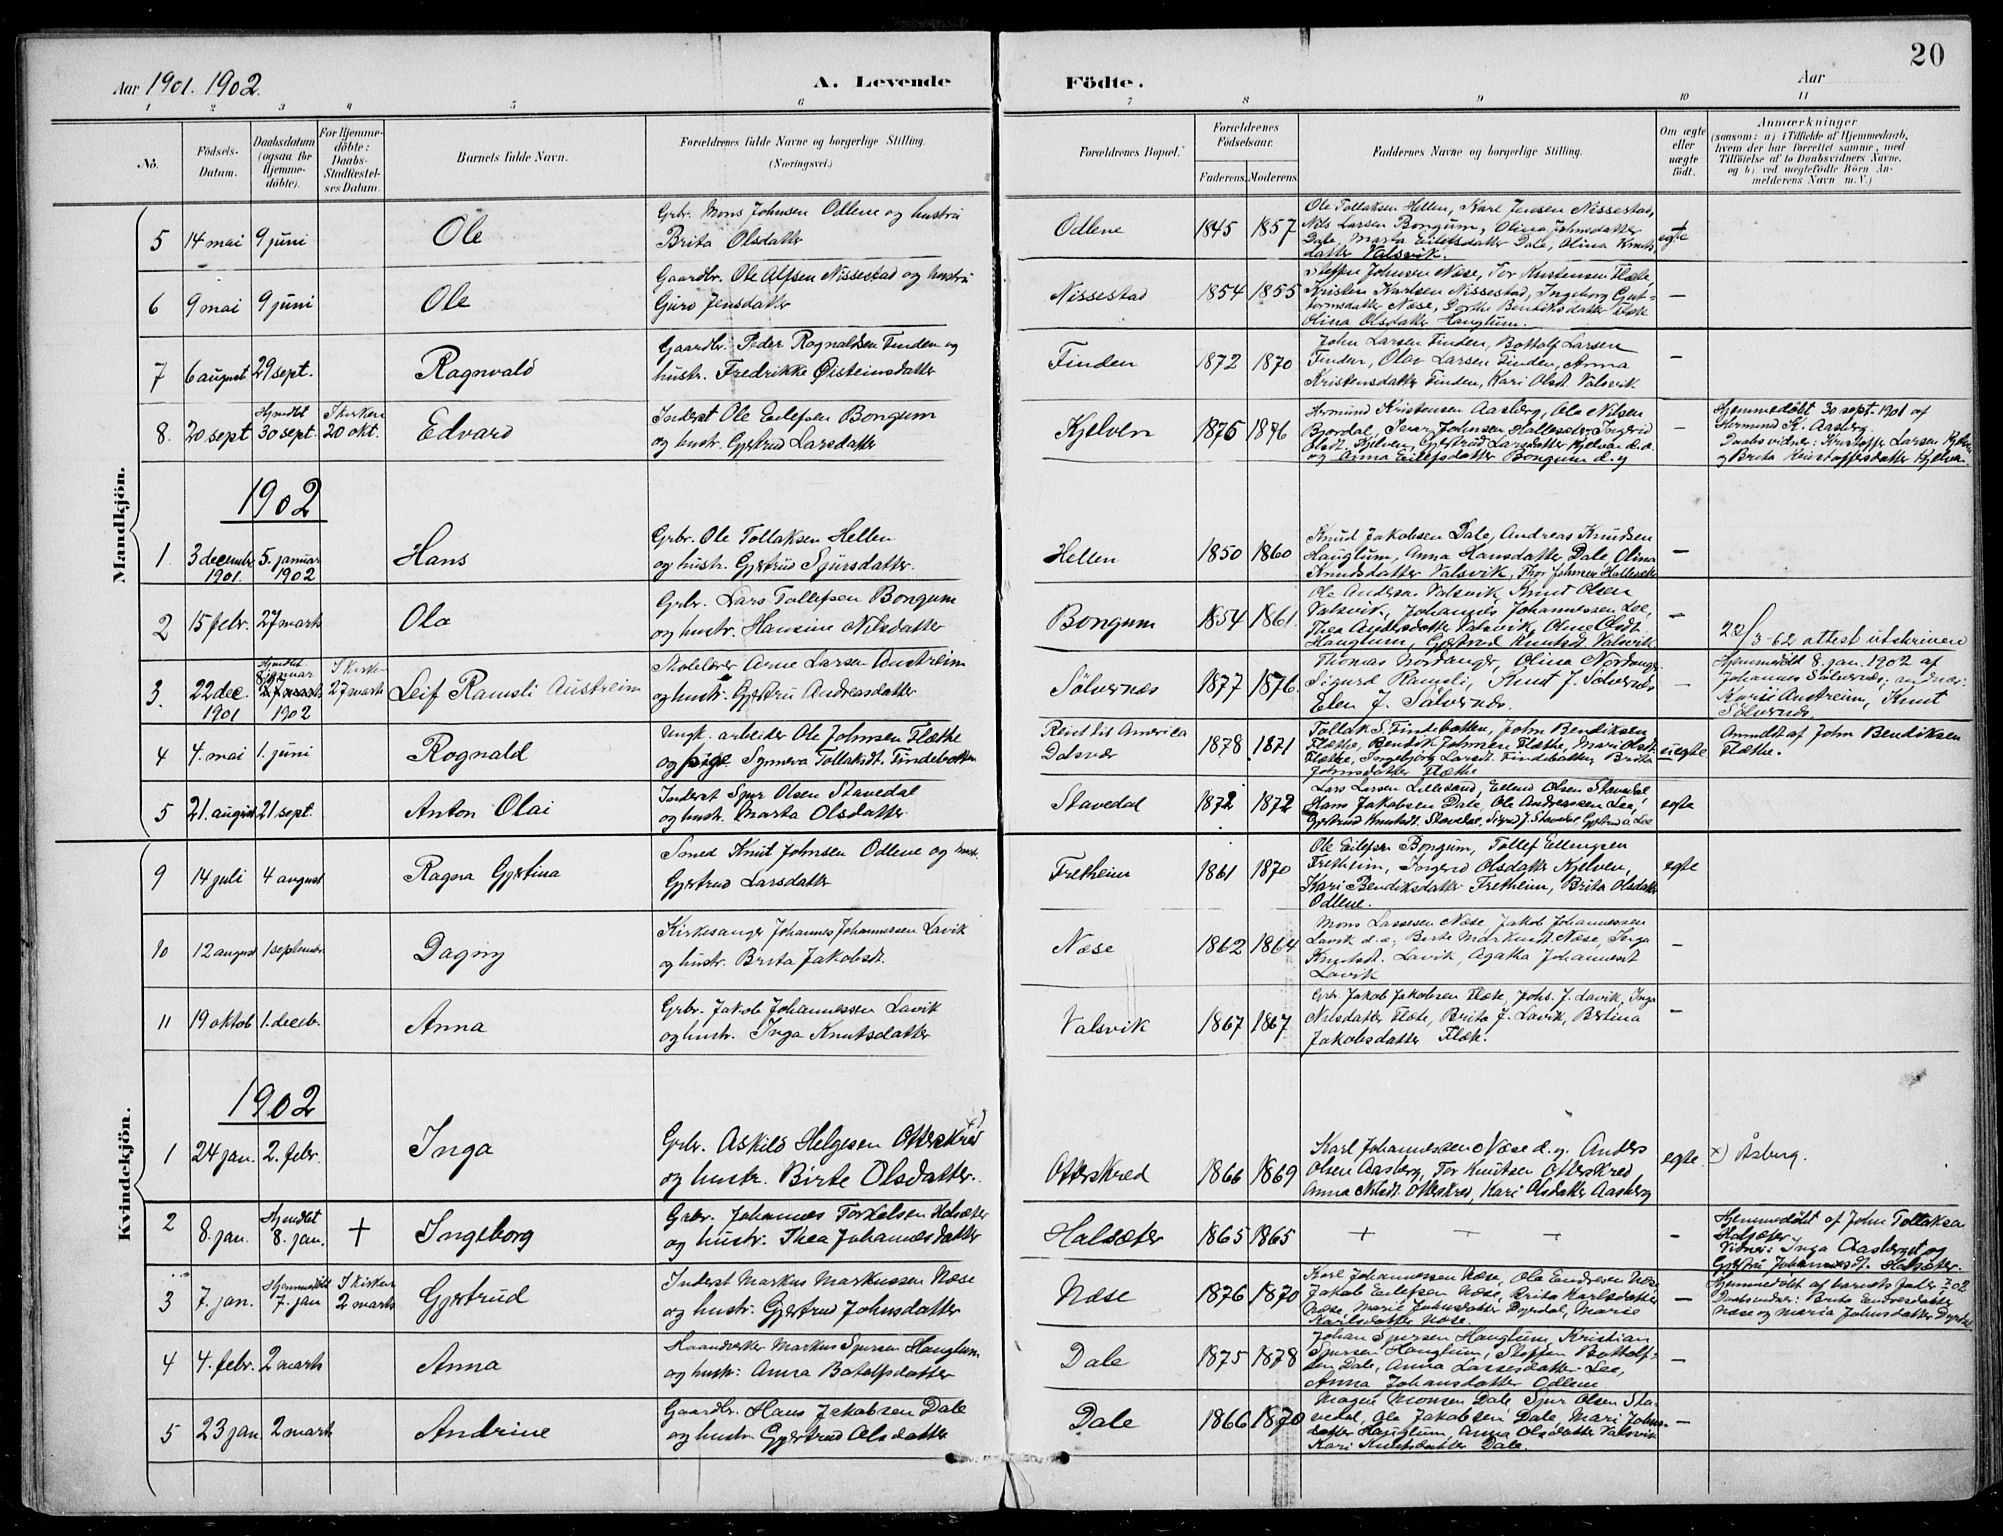 20
Aar 1901. 1902.
A. Levende Födte.
Aar
1 2 3 4 5 6 7 8 9 10 11
No.
Födsels-
Datum.
Daabsdatum
(ogsaa for
Hjemme-
döbte).
For Hjemme-
döbte:
Daabs-
Stadfæstel-
ses Datum.
Barnets fulde Navn.
Forældrenes fulde Navne og borgerlige Stilling.
(Næringsvei.)
Forældrenes Bopæl.
Forældrenes
Födselsaar.
Faderens. Moderens.
Faddernes Navne og borgerlige Stilling.
Om ægte
eller
uægte
födt.
Anmærkninger
(saasom: a) i Tilfælde af Hjemmedaab,
hvem der har forrettet samme, med
Tilföielse af to Daabsvidners Navne,
og b) ved uægtefödte Börn An-
melderens Navn m. V.)
Mandkjön.
5 14 mai 9 juni Ole
Grbr. Mons Johnsen Odlene og hustru
Brita Olsdatter
Odlene 1845 1857
Ole Tollaksen Hellen, Karl Jensen Nissestad,
Nils Larsen Bongum, Olina Johnsdatter
Dale, Marta Eilefsdatter Dale, Olina Knuts-
datter Valsvik.
egte
6 9 mai 9 juni Ole
Gaardbr. Ole Alfsen Nissestad og hustru
Guro Jensdatter
Nissestad 1854 1855
Steffen Johnsen Næse, Tor Kristensen Flæte,
Kristen Karlsen Nissestad, Ingeborg Gut-
tormsdatter Næse, Dorthe Bendiksdatter Flæte
Olina Olsdatter Hauglum.
—
7 6 august 29 sept. Ragnvald
Gaardbr. Peder Rognaldsen Finden og
hustr. Fredrikke Øisteinsdatter
Finden 1872 1870
John Larsen Finden, Bottolf Larsen
Finden, Olav Larsen Finden, Anna
Kristensdatter Finden, Kari Olsdt Valsvik
—
8. 20 sept Hjmdbt 30 sept. I kirken 20 okt. Edvard
Inderst Ole Eilefsen Bongum
og hustr. Gjertrud Larsdatter
Kjelven 1875 1876
Hermund Kristensen Aasberg, Ole Nilsen
Bjordal, Ivar Johnsen Hallesæter, Ingerid
Olsdt. Kjelven, Gjertrud Larsdatter Kjelven d. a.
og Anna Eilefsdatter Bongum d. y
—
Hjemmedøbt 30 sept. 1901 af
Hermund K. Aasberg.
Daabsvidner: Kristoffer Larsen Kjelven
og Brita Kristoffersdatter Kjelven.
1902
1 3 decembr 1901. 5. januar 1902 Hans
Grbr. Ole Tollaksen Hellen
og hustr. Gjertrud Spursdatter.
Hellen 1850 1860
Knud Jakobsen Dale, Andreas Knudsen
Hauglum, Anna Hansdatter Dale, Olina
Knudsdatter Valsvik, Thor Johnsen Hallesæte
—
2 15 febr. 27 marts Ola
Grbr. Lars Tollefsen Bongum
og hustr. Hansine Nilsdatter
Bongum 1854 1861
Ole Andersen Valsvik, Knut Olsen
Valsvik, Johannes Johannessen Lee,
Thea Andersdatter Valsvik, Oline Olsdt.
Hauglum, Gjertrud Knutsdt. Valsvik
—
22/3-62 attest utskriven
3. 22 dec. 1901 Hjmdbt 8 januar 27 marts 1902 I kirken 27 marts Leif Ramsli Austreim
Skolelærer Arne Larsen Austreim
og hustr. Gjertru Andreasdatter
Sölvernæs 1877 1876.
Thomas Nordanger, Olina Nordanger
Sigurd Ramsli, Knut J. Sölvernæs
Elen J. Sölvernæs.
—
Hjemmedöbt 8. jan. 1902 af
Johannes Sölvernæs; vidner:
Kari Austreim, Knut
Sölvernæs.
4 4. mai 1. juni Rognald
Ungk. arbeider Ole Johnsen Flæthe
og pige Synneva Tollaksdt. Findebotten
Reist til Amerika
Dalsvær 1878 1871
Tollak S. Findebotten, John Bendiksen
Flæthe, Bendik Johnsen Flæthe, Mari Olsdt.
Flæthe, Ingebjörg Larsdt. Findebotten, Brita
Johnsdatter Flæthe
uegte
Anmeldt af John Bendiksen
Flæthe.
5 21. august 21 sept. Anton Olai
Inderst Spur Olsen Stavedal
og hustr. Marta Olsdatter
Stavedal 1872 1872
Lars Larsen Lillesand, Ellend Olsen Stavedal,
Hans Jakobsen Dale, Ole Andreassen Lee,
Gjertrud Knutsdt. Stavedal, Sigrid J. Stavedal, Gjertrud A. Lee
egte
Kvindekjön.
9 14 juli 4 august Ragna Gjertina
Smed Knut Johnsen Odlene og hust.
Gjertrud Larsdatter
Fretheim 1861 1870
Ole Eilefsen Bongum, Tollef Ellingsen
Fretheim, Ingerid Olsdatter Kjelven,
Kari Bendiksdatter Fretheim, Brita Olsdatter
Odlene.
egte
10 12 august 1 september Dagny
Kirkesanger Johannes Johannessen Lavik
og hustr. Brita Jakobsdt.
Næse 1862 1864
Mons Lassesen Næse, Jakob Johannessen
Lavik d. æ, Birte Markusdt. Næse, Inga
Knutsdt. Lavik, Agatha Johannesdt
Lavik
—
11 19 oktob 1. deceb. Anna
Grbr. Jakob Johannessen Lavik
og hustr. Inga Knutsdatter
Valsvik 1867 1867
Grbr. Jakob Jakobsen Flæte, Johs. J. Lavik, Inga
Nilsdatter Flæte, Brita J. Lavik, Bertina
Jakobsdatter Flæte.
—
1902
1 24 jan. 2. febr. Inga
Grbr. Askild Helgesen Otterskred x)
og hustr. Birte Olsdatter.
Otterskred 1866 1869
Karl Johannessen Næse d. y. Anders
Olsen Aasberg, Tor Knutsen Otterskred,
Anna Nilsdt. Otterskred, Kari Olsdatter Aasberg
egte.
x) Åsberg.
2 8. jan. Hjmdbt 8. jan. + Ingeborg
Grbr. Johannes Torkelsen Halsæter
og hustr. Thea Johannesdatter
Halsæter 1865 1865
+ - - -
Hjemmedøbt af John Tollaksen
Halsæter
Vidner: Inga Aasberget og
Gjertru Johannesdt. Halsæter.
3 7. jan. Hjemmedöbt 7. jan I kirken 2 marts Gjertrud
Inderst Markus Markussen Næse
og hustr. Gjertrud Johnsdatter
Næse 1876 1870
Karl Johannessen Næse, Ole Endresen Næse
Jakob Eilefsen Næse, Brita Karlsdatter
Næse, Marie Johnsdatter Dyrdal, Marie
Karlsdatter Næse.
—
Hjemmedøbt af barnets fader 7/1 02
Daabsvidner: Brita Endresdatter
Næse og Maria Johnsdatter Dyrdal.
4 4. febr. 2 marts Anna
Haandverker Markus Spursen Hauglum
og hustr: Anna Botolfsdatter
Dale 1875 1878
Johan Spursen Hauglum, Kristian
Spursen Hauglum, Steffen Bottolf-
sen Dale, Anna Lassesdatter Lee,
Anna Johansdatter Odlene
—
5 23 jan 2 marts Andrine
Gaardbr. Hans Jakobsen Dale
og hustr. Gjertrud Olsdatter
Dale 1866 1870
Magne Monsen Dale, Spur Olsen Sta-
vedal, Ole Jakobsen Dale, Mari Johns-
datter Hauglum, Anna Olsdatter Valsvik
Kari Knutsdatter Dale.
—